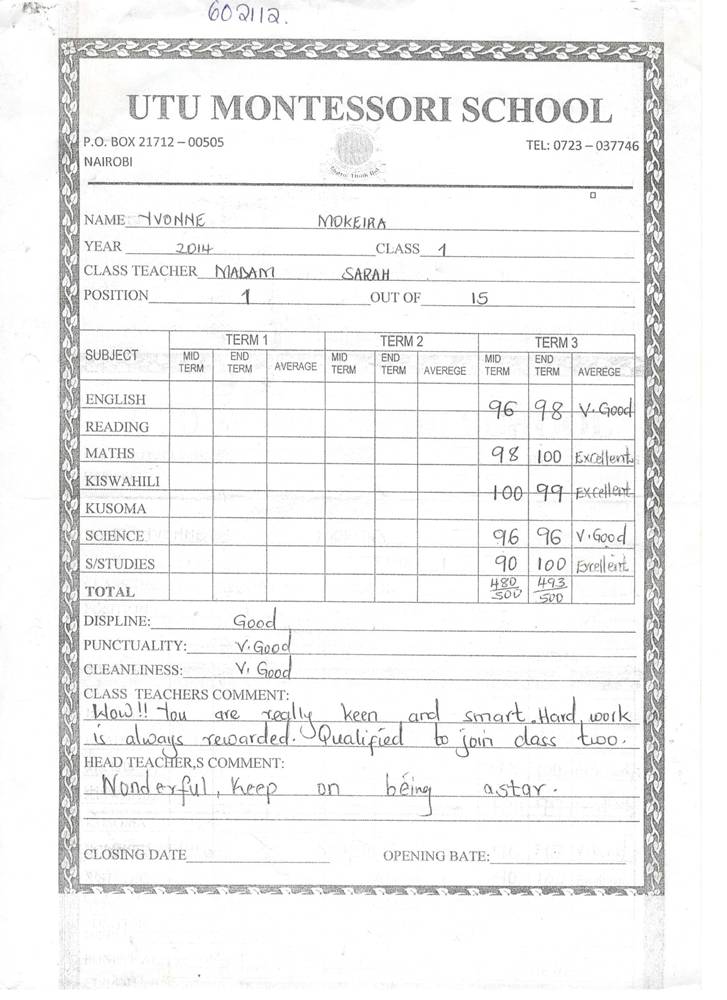 602112.
UTU MONTESSORI SCHOOL
P.O. BOX 21712 – 00505 TEL: 0723 – 037746
NAIROBI
NAME YVONNE MOKEIRA
YEAR 2014 CLASS 1
CLASS TEACHER MADAM SARAH
POSITION 1 OUT OF 15
SUBJECT TERM 1 TERM 2 TERM 3
MID TERM END TERM AVERAGE MID TERM END TERM AVEREGE MID TERM END TERM AVEREGE
ENGLISH 96 98 V.Good
READING
MATHS 98 100 Excellent
KISWAHILI 100 99 Excellent
KUSOMA
SCIENCE 96 96 V.Good
S/STUDIES 90 100 Excellent
TOTAL 480/500 493/500
DISPLINE: Good
PUNCTUALITY: V.Good
CLEANLINESS: V. Good
CLASS TEACHERS COMMENT:
Wow!! You are really keen and smart. Hard work
is always rewarded. Qualified to join class two.
HEAD TEACHER,S COMMENT:
Wonderful, keep on being a star.
CLOSING DATE OPENING BATE: